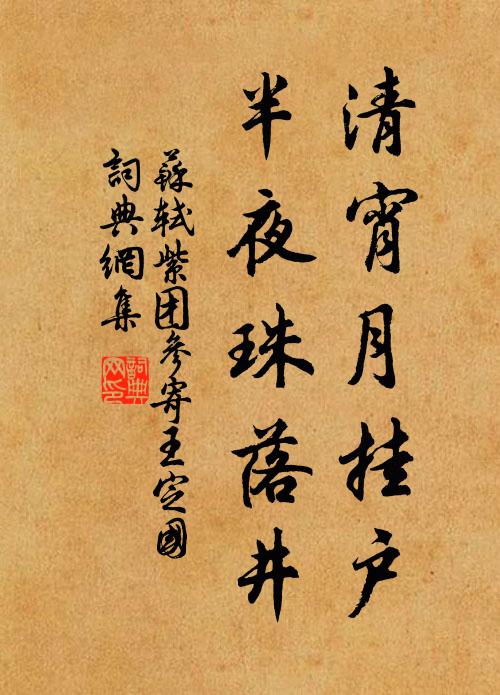 清宵月挂户
半夜珠落井
蘇軾紫团參寄王定國
詞典網集
詞典网印